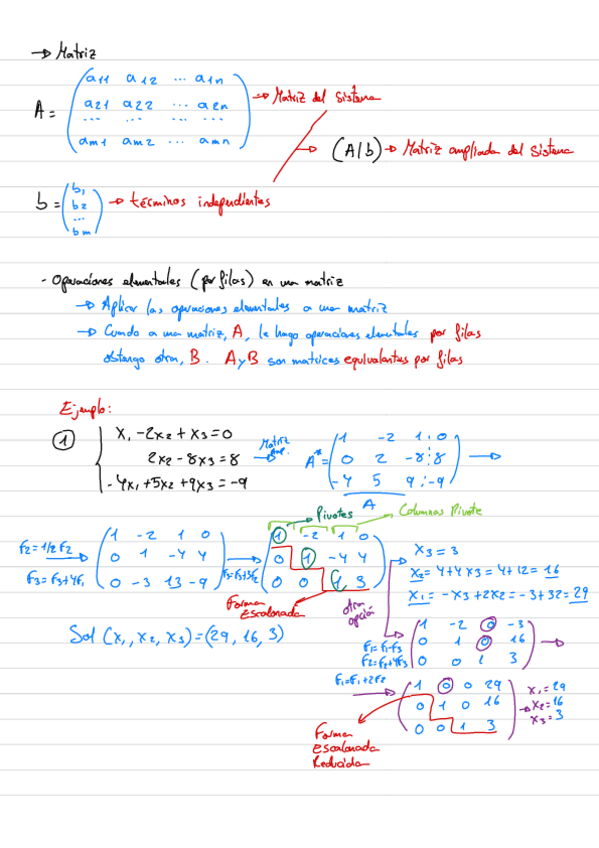 → Matriz
A = (a11 a12 ... a1n
a21 a22 ... a2n
... ... ... ...
am1 am2 ... amn) → Matriz del sistema
(A|b) → Matriz ampliada del sistema
b = (b1
b2
...
bm) → términos independientes
- Operaciones elementales (por filas) en una matriz
→ Aplicar las operaciones elementales a una matriz
→ Cuando a una matriz, A, le hago operaciones elementales por filas
obtengo otra, B. A y B son matrices equivalentes por filas
Ejemplo:
① { x1 - 2x2 + x3 = 0
2x2 - 8x3 = 8
-4x1 + 5x2 + 9x3 = -9
Matriz amp. →
A* = (1 -2 1 0
0 2 -8 8
-4 5 9 -9) →
A
Pivotes
Columnas Pivote
F2 = 1/2 F2
F3 = F3 + 4F1
(1 -2 1 0
0 1 -4 4
0 -3 13 -9)
F3 = F3 + 3F2
(1 -2 1 0
0 1 -4 4
0 0 1 3)
Forma escalonada
x3 = 3
x2 = 4 + 4x3 = 4 + 12 = 16
x1 = -x3 + 2x2 = -3 + 32 = 29
Sol (x1, x2, x3) = (29, 16, 3)
otra opción
F1 = F1 - F3
(1 -2 0 -3
0 1 0 16
0 0 1 3) →
F1 = F1 + 2F2
(1 0 0 29
0 1 0 16
0 0 1 3)
→ x1 = 29
x2 = 16
x3 = 3
Forma
escalonada
Reducida